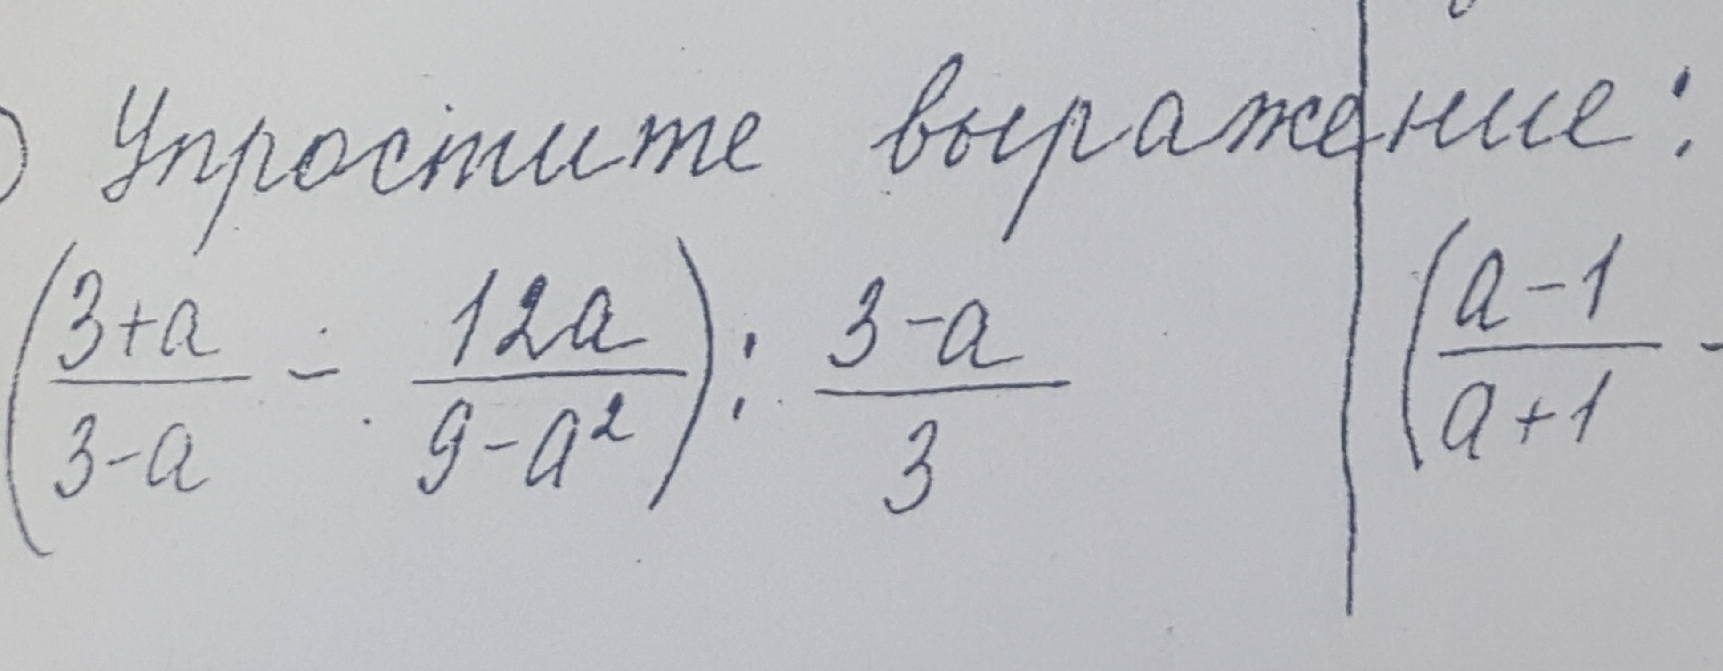 ) Упростите выражение:
(3+a/3-a - 12a/9-a²) : 3-a/3 (a-1/a+1 -